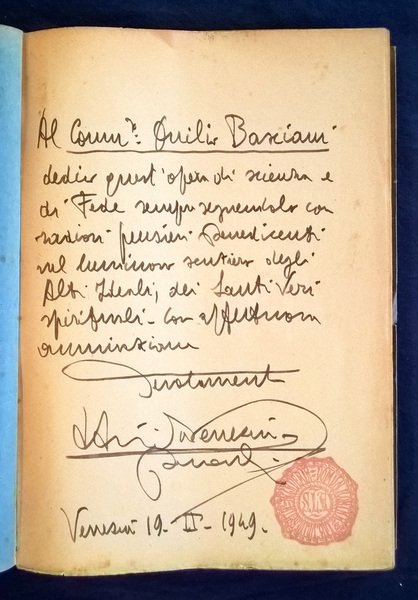 Al Comm.re Duilio Basciani
dedico quest'opera di scienza e
di Fede sempre seguendolo con
radiosi pensieri benedicenti
nel luminoso sentiero degli
Alti Ideali, dei Santi Veri
spirituali - Con affettuosa
ammirazione
Devotament
19 - II - 1949.